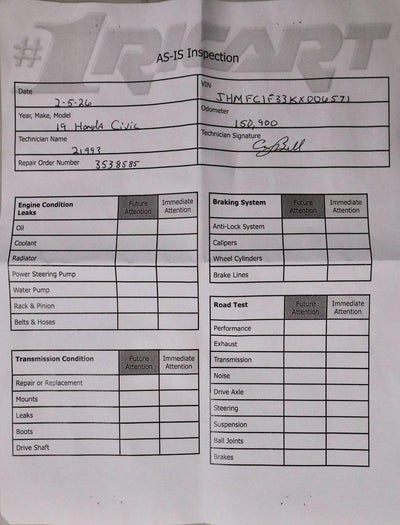 #1 RICART
AS-IS Inspection
Date 2-5-26
VIN JHMFC1F33KX006571
Year, Make, Model 19 Honda Civic
Odometer 150,900
Technician Name 21993
Technician Signature
Repair Order Number 3538585
Engine Condition Future Attention Immediate Attention
Leaks
Oil
Coolant
Radiator
Power Steering Pump
Water Pump
Rack & Pinion
Belts & Hoses
Transmission Condition Future Attention Immediate Attention
Repair or Replacement
Mounts
Leaks
Boots
Drive Shaft
Braking System Future Attention Immediate Attention
Anti-Lock System
Calipers
Wheel Cylinders
Brake Lines
Road Test Future Attention Immediate Attention
Performance
Exhaust
Transmission
Noise
Drive Axle
Steering
Suspension
Ball Joints
Brakes